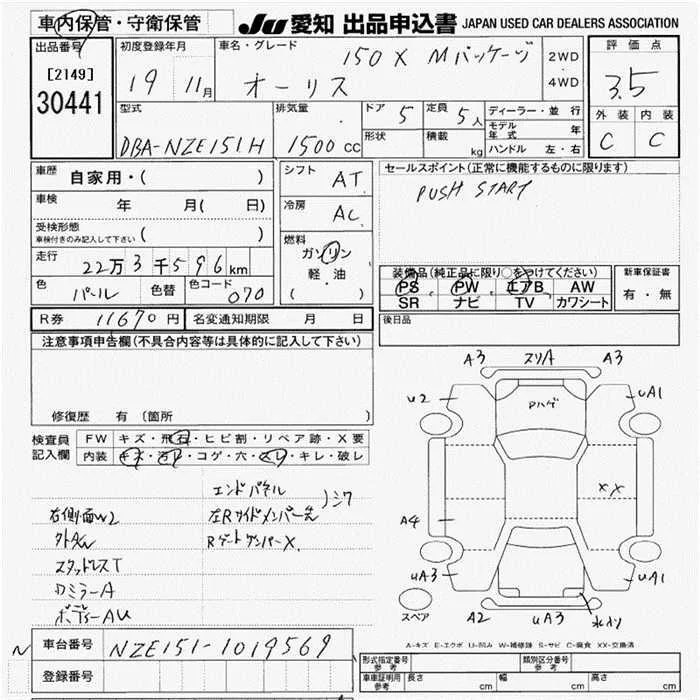 車内保管・守衛保管
JU 愛知 出品申込書 JAPAN USED CAR DEALERS ASSOCIATION
出品番号
[2149]
30441
初度登録年月
19 11月
車名・グレード
150 X Mパッケージ
オーリス
2WD
・
4WD
評価点
3.5
外装 内装
C C
型式
DBA-NZE151H
排気量
1500 cc
ドア 5
形状
定員 5人
積載 kg
ディーラー・並行
モデル年式 年
ハンドル 左・右
車歴 自家用・( )
車検 年 月( 日)
受検形態
車検付きのみ記入して下さい ( )
走行
22万3千596km
色 パール 色替 色コード 070
シフト AT
冷房 AC
燃料
ガソリン
軽油
( ・ )
セールスポイント(正常に機能するものに限ります)
PUSH START
装備品(純正品に限り○をつけてください)
PS PW エアB AW
SR ナビ TV カワシート
新車保証書
有・無
R券 11670円 名変通知期限 月 日
後日品
注意事項申告欄(不具合内容等は具体的に記入して下さい)
修復歴 有 〔箇所
検査員
記入欄
FW キズ・飛石・ヒビ割・リペア跡・X要
内装 キズ・汚レ・コゲ・穴・スレ・キレ・破レ
エンドパネル
左Rサイドメンバー先
)シワ
Rゲートダンパー X
右側面W2
外AW
スタッドレスT
Dミラー A
ボディー AU
A3 スリA A3
U2 Pハゲ UA1
XX
A4
UA3 UA1
スペア
A2 UA3
A-キズ E-エクボ U-凹み W-補修跡 S-サビ C-腐食 XX-交換済
N
車台番号 NZE151-1019569
登録番号
形式指定番号
参考
類別区分番号
参考
車庫証明用
参考
長さ cm 幅 cm 高さ cm